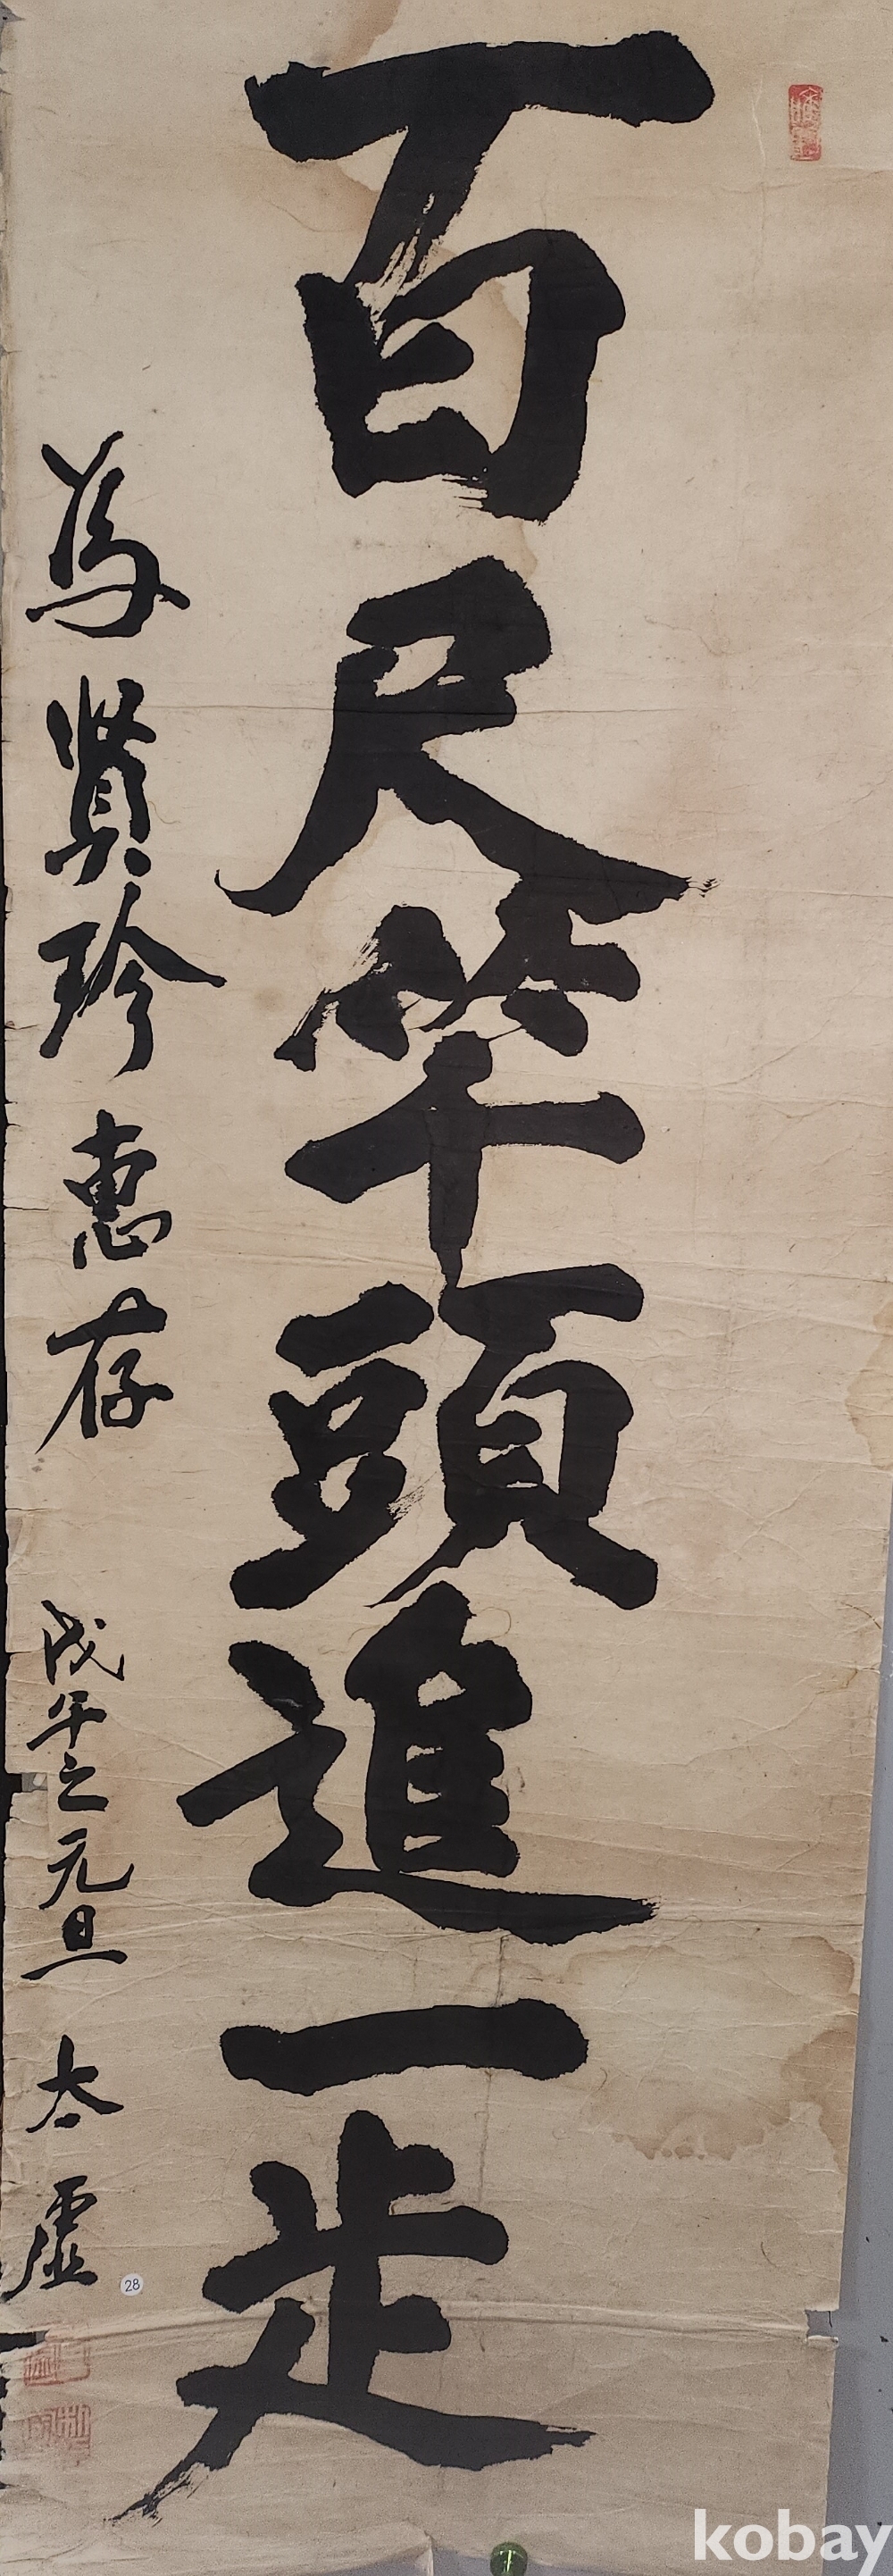 百尺竿頭進一步
為賢珍惠存
戊午之元旦 太虛
28
kobay